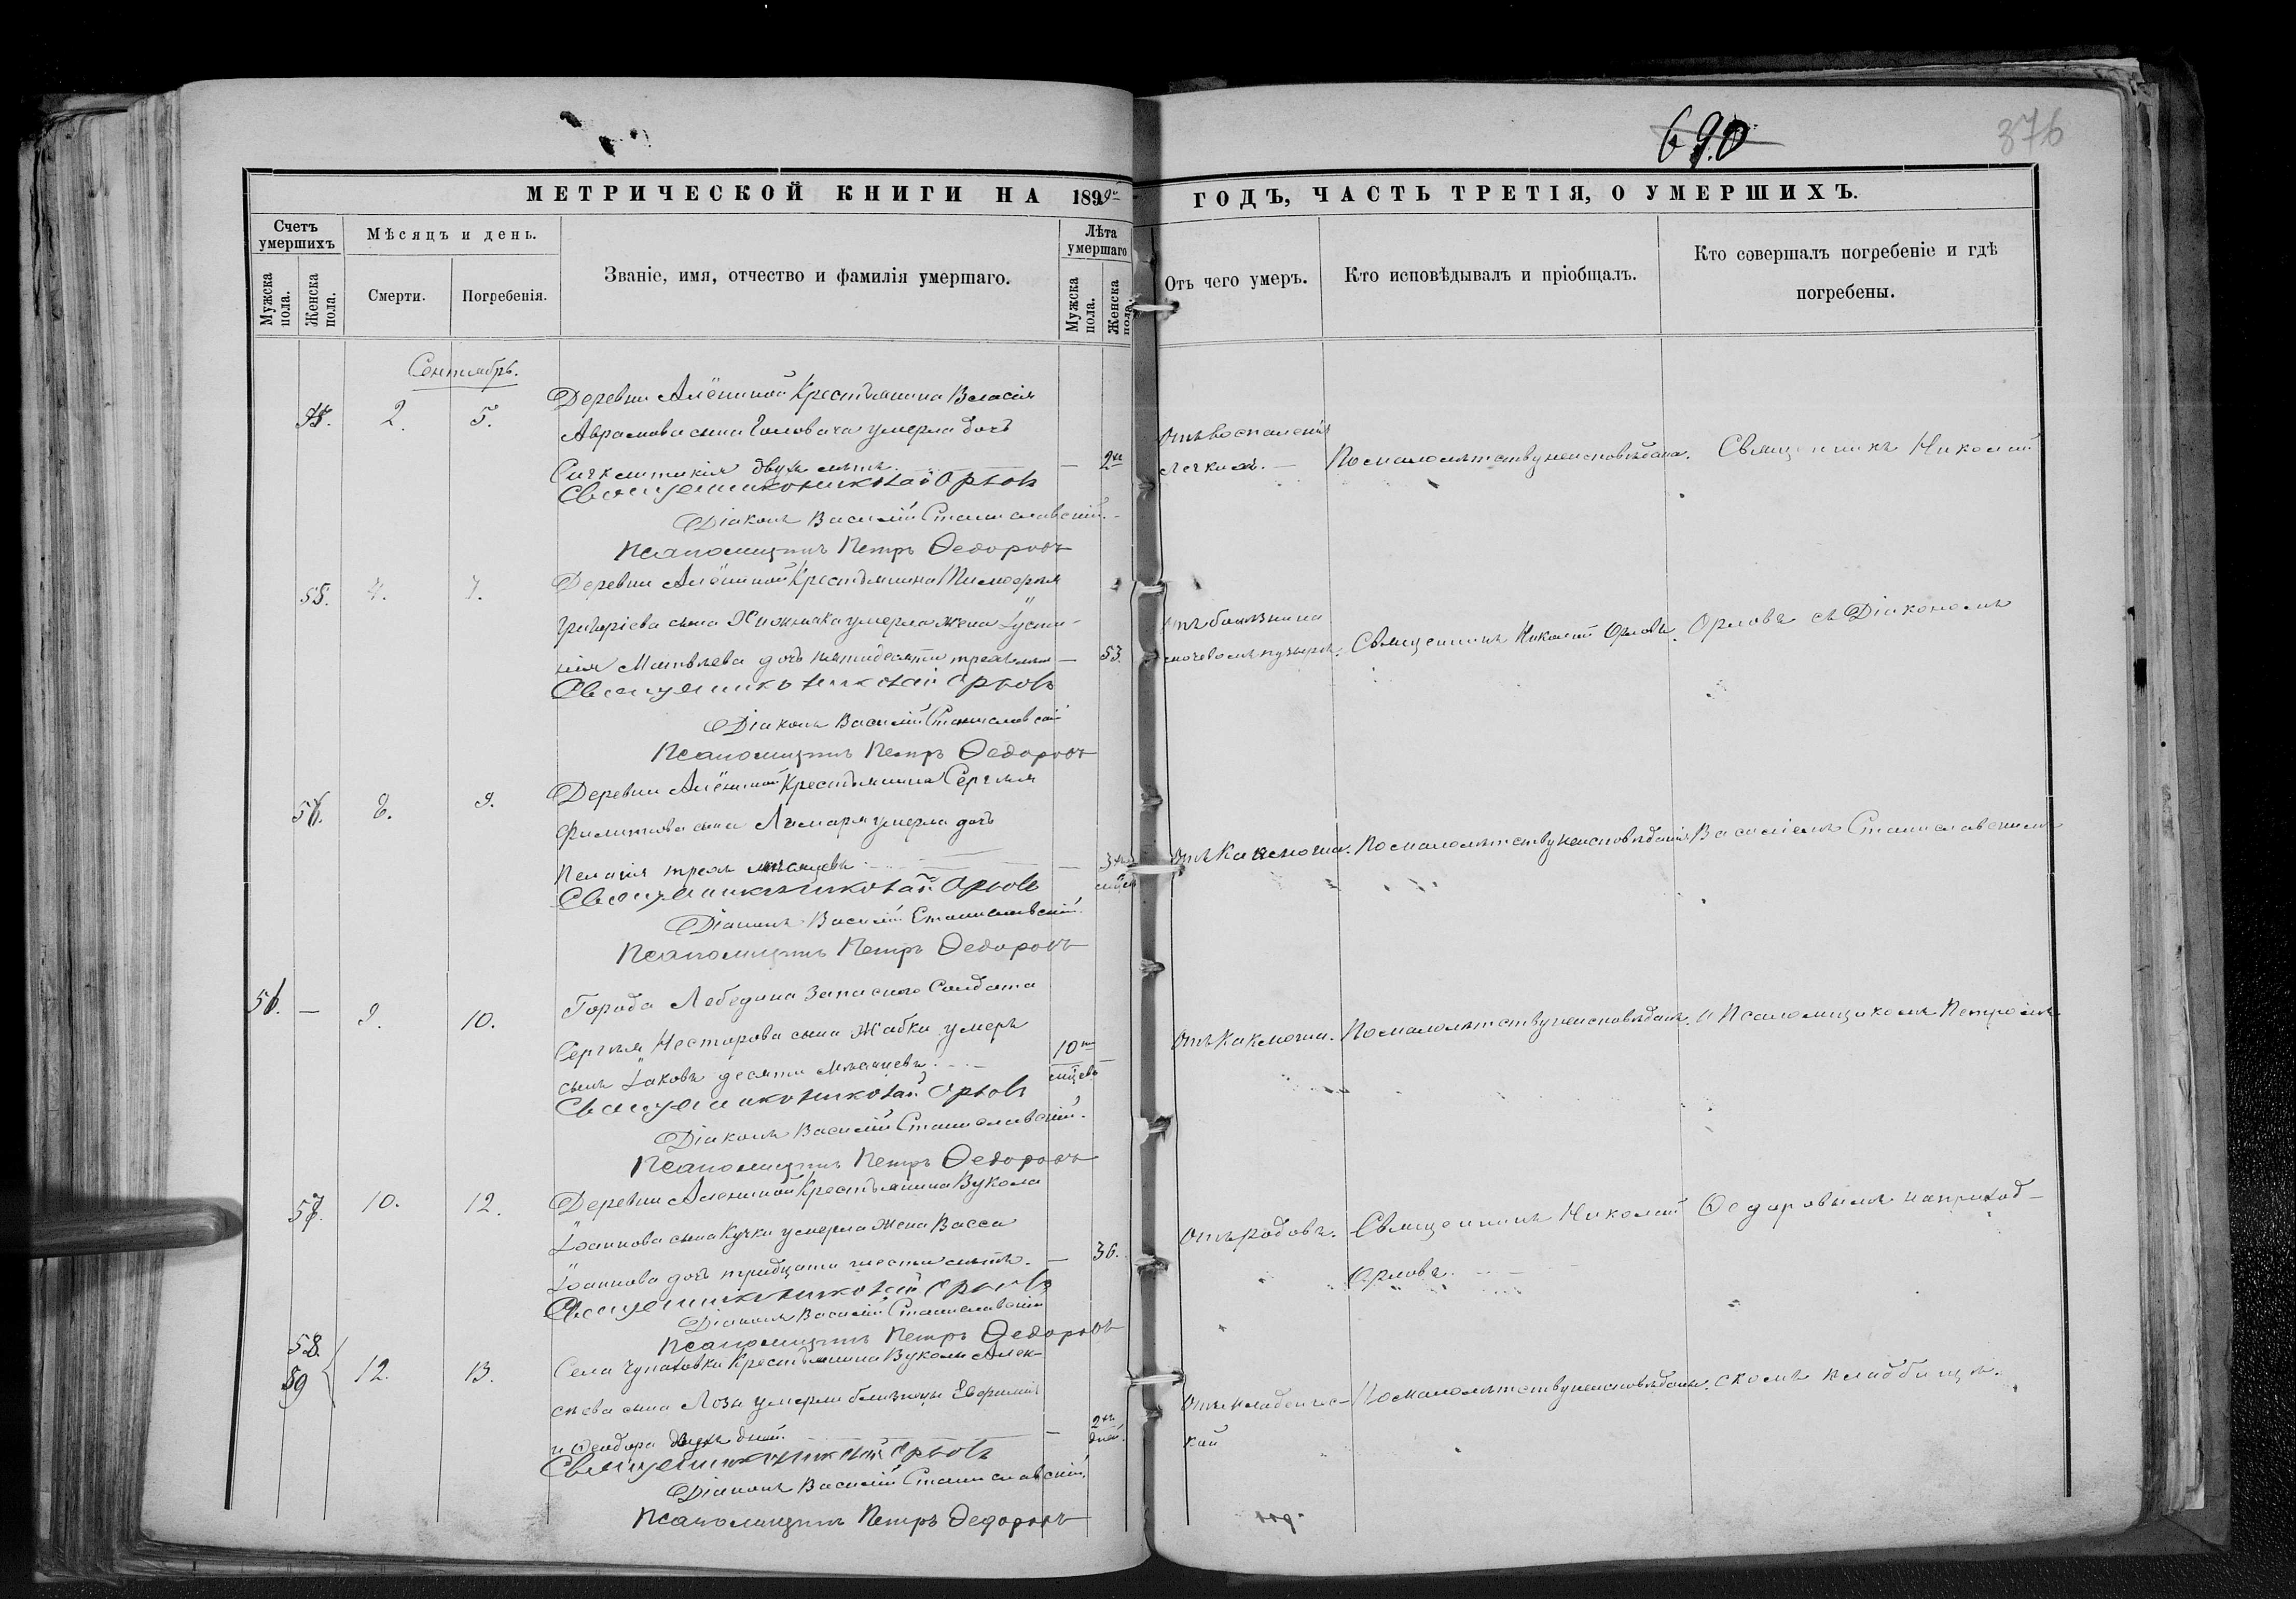 690
376
МЕТРИЧЕСКОЙ КНИГИ НА 1899 ГОДЪ, ЧАСТЬ ТРЕТІЯ, О УМЕРШИХЪ.
Счетъ умершихъ
Мѣсяцъ и день.
Званіе, имя, отчество и фамилія умершаго.
Лѣта умершаго
Отъ чего умеръ.
Кто исповѣдывалъ и пріобщалъ.
Кто совершалъ погребеніе и гдѣ
погребены.
Мужска пола.
Женска пола.
Смерти.
Погребенія.
Мужска пола.
Женска пола.
Сентябрь.
Деревни Алёшиной Крестьянина Власія
2. 5. Аврамова сына Головача умерла дочь
двухъ лѣтъ. — 2
Отъ воспаленія
легкихъ. — По малолѣтству неисповѣдана. Священникъ Николай
Священникъ Николай Орловъ
Діаконъ Василій Станиславскій.
Псаломщикъ Петръ Ѳедоровъ
55. 4. 7. Деревни Алёшиной Крестьянина Тимофея
Григоріева сына умерла жена Іусти-
нія Матвѣева дочь пятидесяти трехъ лѣтъ — 53.
Отъ болѣзни на
мочевомъ пузырѣ. Священникъ Николай Орловъ. Орловъ съ Діакономъ
Священникъ Николай Орловъ
Діаконъ Василій Станиславскій
Псаломщикъ Петръ Ѳедоровъ
56. 8. 9. Деревни Алёшиной Крестьянина Сергѣя
Филиппова сына Лымаря умерла дочь
Пелагія трехъ мѣсяцевъ. — 3хъ мѣсяц
Отъ Каклюша. По малолѣтству неисповѣдана Василіемъ Станиславскимъ
Священникъ Николай Орловъ
Діаконъ Василій Станиславскій.
Псаломщикъ Петръ Ѳедоровъ
56. — 9. 10. Города Лебедина Запаснаго Солдата
Сергѣя Несторова сына Жабки умеръ
сынъ Іаковъ десяти мѣсяцевъ. 10ти мцевъ —
Отъ Каклюша. По малолѣтству неисповѣданъ. и Псаломщикомъ Петромъ
Священникъ Николай Орловъ
Діаконъ Василій Станиславскій.
Псаломщикъ Петръ Ѳедоровъ
57. 10. 12. Деревни Алешиной Крестьянина Вукола
Іоаннова сына Кучки умерла жена Васса
Іоаннова дочь тридцати шести лѣтъ. — 36.
Отъ родовъ. Священникъ Николай Ѳедоровымъ на приход-
Орловъ.
Священникъ Николай Орловъ
Діаконъ Василій Станиславскій
Псаломщикъ Петръ Ѳедоровъ
58.
59 12. 13. Села Чупаховки Крестьянина Вукола Алек-
сѣева сына Лозы умерли близнецы Евфимія
и Ѳеодора двухъ дней. — 2хъ дней.
Отъ младенчес-
кой По малолѣтству неисповѣданы. скомъ кладбищѣ.
Священникъ Николай Орловъ
Діаконъ Василій Станиславскій.
Псаломщикъ Петръ Ѳедоровъ